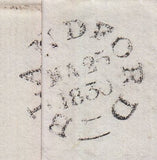 BLANDFORD
MA 25
1830